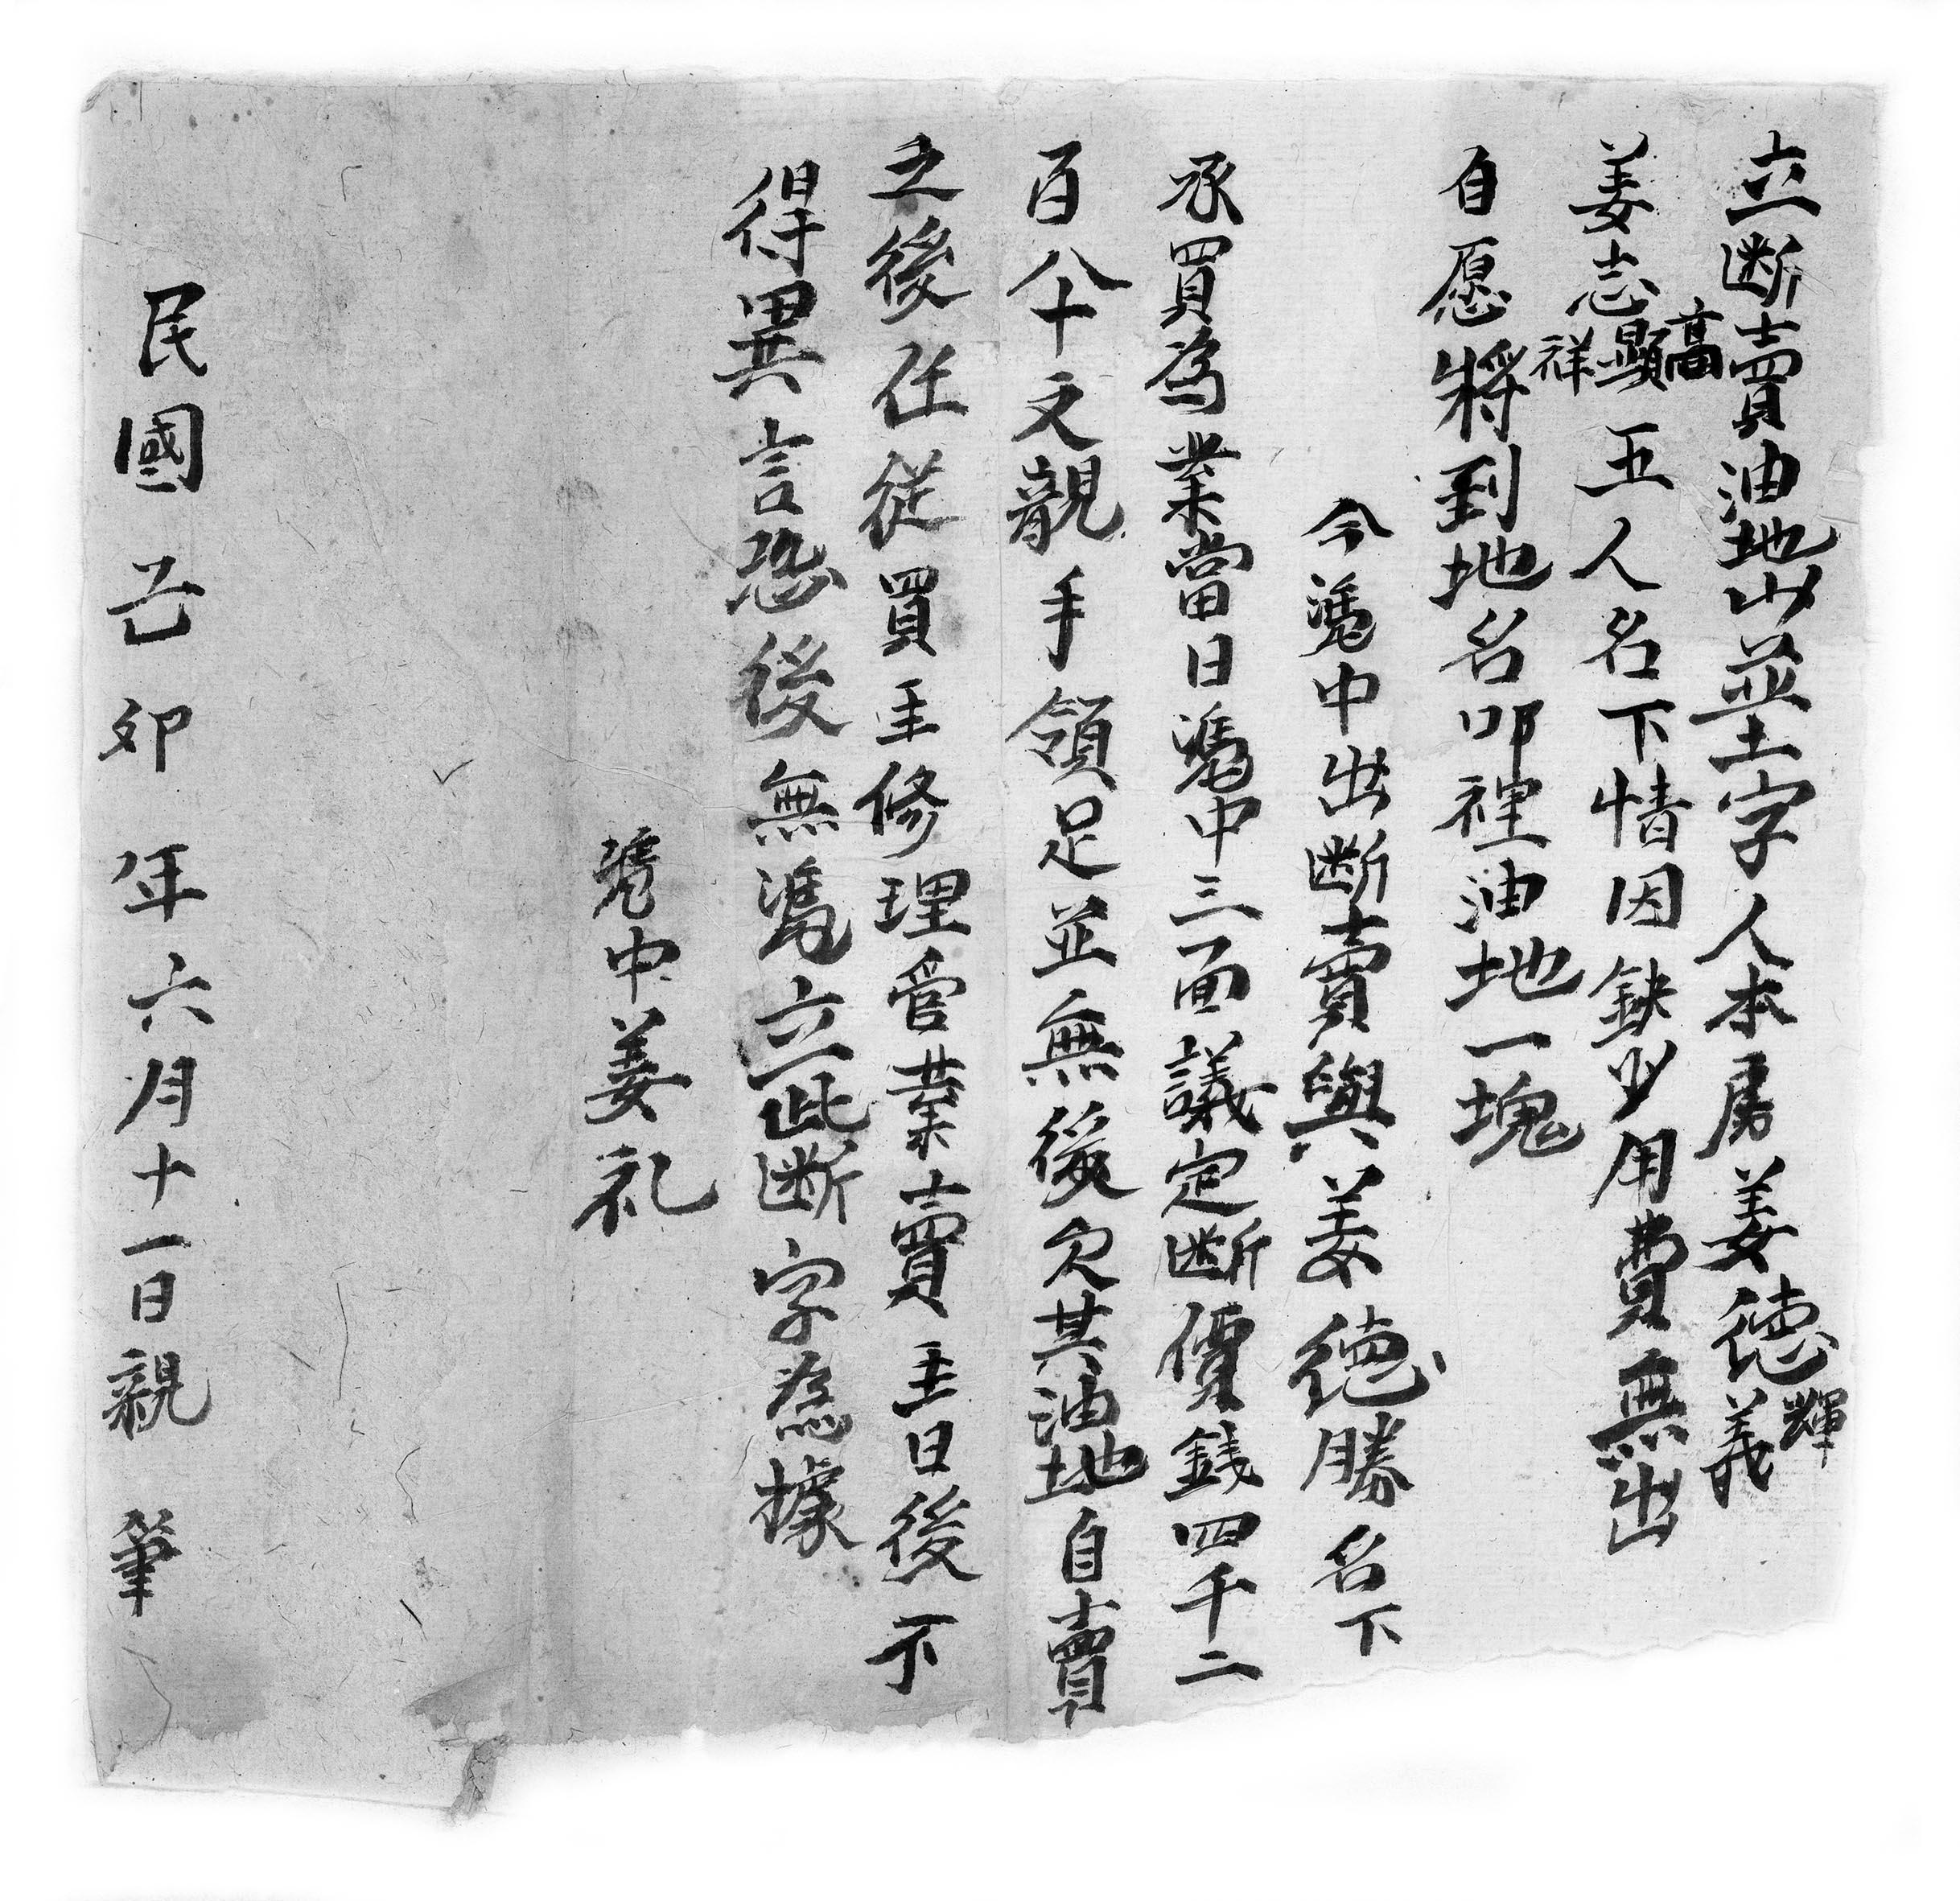 立断賣油地山並土字人本房姜德輝義
姜志高顯祥五人名下情因缺少用費無出
自愿將到地名叩裡油地一塊
今憑中出断賣與姜德勝名下
承買為業當日憑中三面議定断價錢四千二
百八十文親手領足並無後欠其油地自賣
之後任從買主修理管業賣主日後不
得異言恐後無憑立此断字為據
憑中姜礼
民國己卯年六月十一日親筆